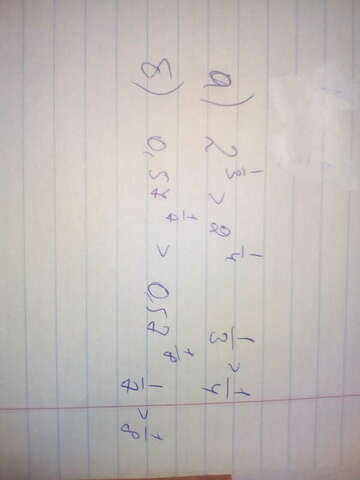 а) 2^{1/3} > 2^{1/4} 1/3 > 1/4
б) 0,57^{1/7} > 0,57^{1/8} 1/7 > 1/8